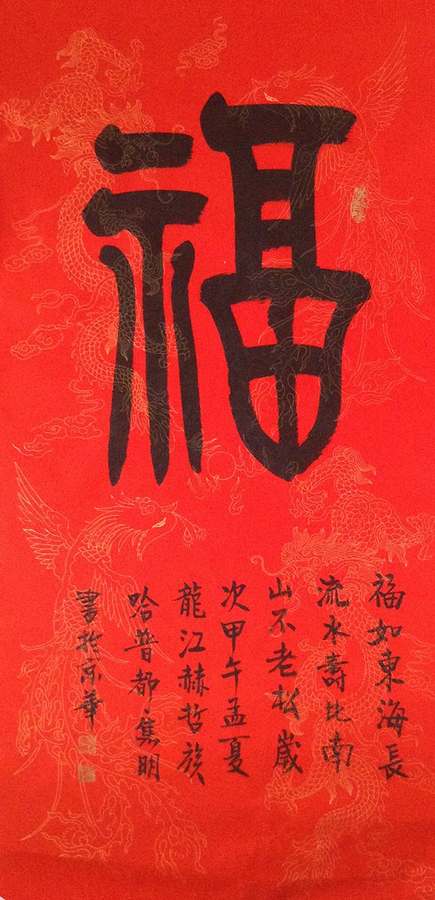 福
福如東海長
流水壽比南
山不老松歲
次甲午孟夏
龍江赫哲族
哈普都·雋明
書於京華